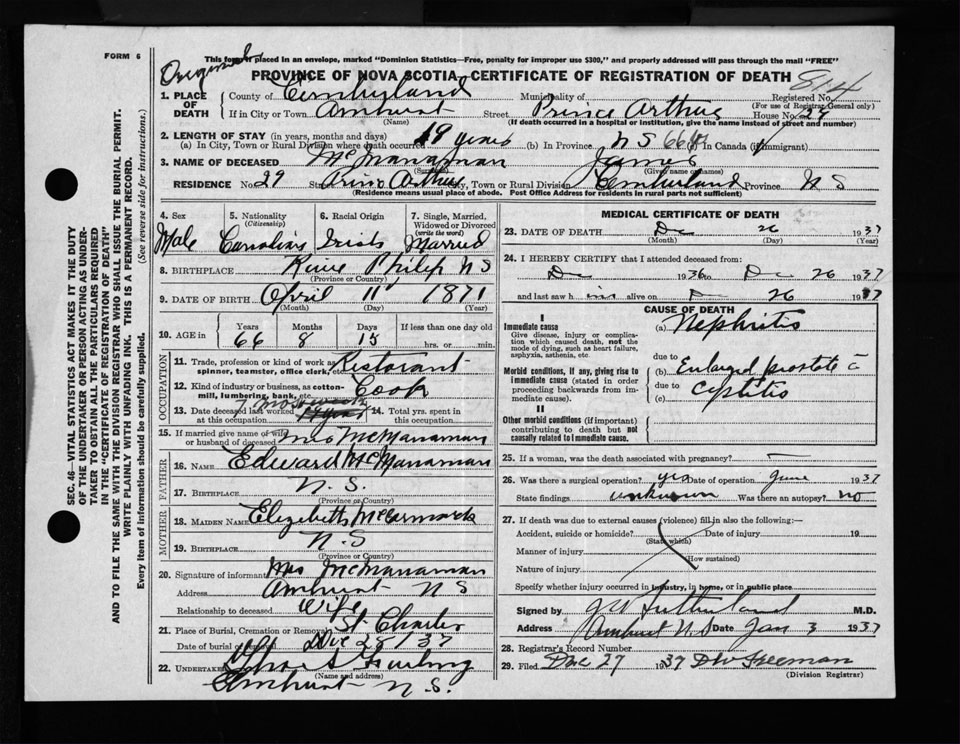 FORM 6
Original
This form if placed in an envelope, marked "Dominion Statistics—Free, penalty for improper use $300," and properly addressed will pass through the mail "FREE"
PROVINCE OF NOVA SCOTIA—CERTIFICATE OF REGISTRATION OF DEATH
814
1. PLACE OF DEATH County of Municipality of Registered No.
(For use of Registrar General only)
If in City or Town Amherst Street Prince Arthur House No. 29
(Name) (If death occurred in a hospital or institution, give the name instead of street and number)
2. LENGTH OF STAY (in years, months and days)
(a) In City, Town or Rural Division where death occurred 19 years (b) In Province N S 66 yr In Canada (if immigrant)
3. NAME OF DECEASED McManaman James
(Surname) (Given name or names)
RESIDENCE No. 29 St. Prince Arthur City, Town or Rural Division Cumberland Province N S
(Residence means usual place of abode. Post Office Address for residents in rural parts not sufficient)
4. Sex 5. Nationality (Citizenship) 6. Racial Origin 7. Single, Married, Widowed or Divorced (write the word)
Male Canadian Irish Married
8. BIRTHPLACE River Philip N S
(Province or Country)
9. DATE OF BIRTH April 11 1871
(Month) (Day) (Year)
10. AGE in Years Months Days If less than one day old
66 8 15 hrs. or min.
OCCUPATION
11. Trade, profession or kind of work as spinner, teamster, office clerk, etc. Restorant
12. Kind of industry or business, as cotton-mill, lumbering, bank, etc. Cook
13. Date deceased last worked at this occupation 14. Total yrs. spent in this occupation
15. If married give name of wife or husband of deceased Mrs McManaman
FATHER
16. NAME Edward McManaman
17. BIRTHPLACE N. S.
(Province or Country)
MOTHER
18. MAIDEN NAME Elizabeth McCormack
19. BIRTHPLACE N. S
(Province or Country)
20. Signature of informant Mrs McManaman
Address Amherst N S
Relationship to deceased Wife
21. Place of Burial, Cremation or Removal St Charles
Date of burial Dec 28/37
22. UNDERTAKER Furlong
(Name and address)
Amherst N.S.
MEDICAL CERTIFICATE OF DEATH
23. DATE OF DEATH Dec 26 1937
(Month) (Day) (Year)
24. I HEREBY CERTIFY that I attended deceased from:
Dec 1936 to Dec 26 1937
and last saw him alive on Dec 26 1937
CAUSE OF DEATH
I
Immediate cause (a) Nephritis
Give disease, injury or complication which caused death, not the mode of dying, such as heart failure, asphyxia, asthenia, etc.
due to
Morbid conditions, if any, giving rise to immediate cause (stated in order proceeding backwards from immediate cause). (b) Enlarged prostate c̄
due to
(c) Cystitis
II
Other morbid conditions (if important) contributing to death but not causally related to immediate cause.
25. If a woman, was the death associated with pregnancy? —
26. Was there a surgical operation? yes Date of operation June 1937
State findings unknown Was there an autopsy? no
27. If death was due to external causes (violence) fill in also the following:—
Accident, suicide or homicide? Date of injury 19
(State which)
Manner of injury
(How sustained)
Nature of injury
Specify whether injury occurred in industry, in home, or in public place
Signed by Sutherland M.D.
Address Amherst N.S Date Jan 3 1937
28. Registrar's Record Number
29. Filed Dec 27 1937 Freeman
(Division Registrar)
SEC. 46—VITAL STATISTICS ACT MAKES IT THE DUTY
OF THE UNDERTAKER OR PERSON ACTING AS UNDER-
TAKER TO OBTAIN ALL THE PARTICULARS REQUIRED
IN THE "CERTIFICATE OF REGISTRATION OF DEATH"
AND TO FILE THE SAME WITH THE DIVISION REGISTRAR WHO SHALL ISSUE THE BURIAL PERMIT.
WRITE PLAINLY WITH UNFADING INK. THIS IS A PERMANENT RECORD.
Every item of information should be carefully supplied. (See reverse side for instructions.)